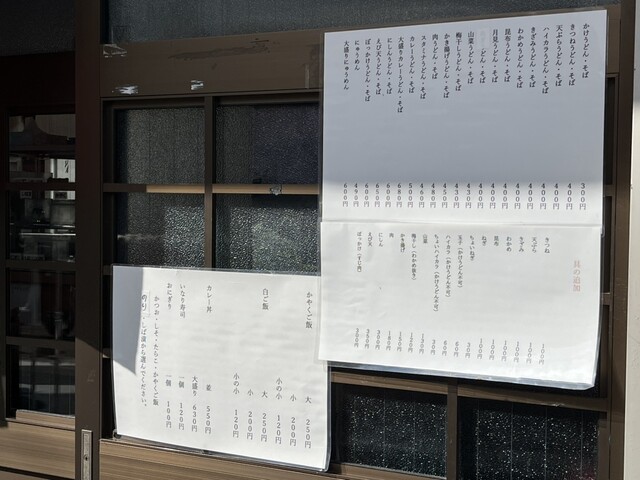 かけうどん・そば 300円
きつねうどん・そば 400円
天ぷらうどん・そば 400円
ハイカラうどん・そば 400円
きざみうどん・そば 400円
わかめうどん・そば 400円
昆布うどん・そば 400円
月見うどん・そば 400円
うどん・そば 400円
山菜うどん・そば 430円
梅干しうどん・そば 430円
かき揚げうどん・そば 450円
肉うどん・そば 480円
スタミナうどん・そば
カレーうどん・そば 500円
大盛りカレーうどん・そば 680円
にしんうどん・そば 650円
えび天うどん・そば 650円
ぶっかけうどん・そば 600円
にゅうめん 490円
大盛りにゅうめん 600円
具の追加
きつね 100円
天ぷら 100円
きざみ 100円
わかめ 100円
昆布 100円
ねぎ 100円
ちょいねぎ
玉子
ハイカラ
ちょいハイカラ
山菜
梅干し
かき揚げ 150円
肉 180円
にしん 350円
えび天 350円
ぶっかけ 300円
かやくご飯 大 250円
小 200円
小の小 120円
白ご飯 大 250円
小 200円
小の小 120円
カレー丼 並 550円
大盛り 630円
いなり寿司 一個 120円
おにぎり 一個 100円
かつお・しそ・たらこ・かやくご飯
のり・しば漬から選んでください。